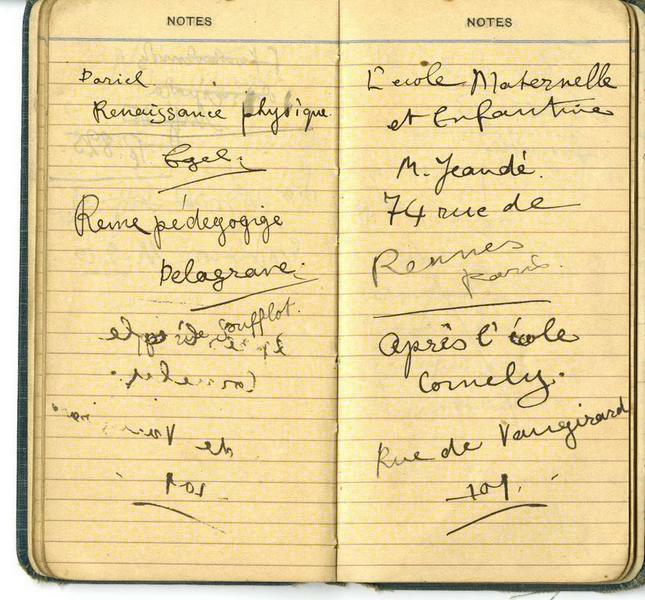 NOTES
Dariel.
Renaissance physique
Reme pédegogige
Delagrave.
rue Soufflot.
NOTES
L'ecole Maternelle
et Enfantine
M. Jeandé.
74 rue de
Rennes
Paris.
Après l'école
Cornely.
Rue de Vaugirard
101.